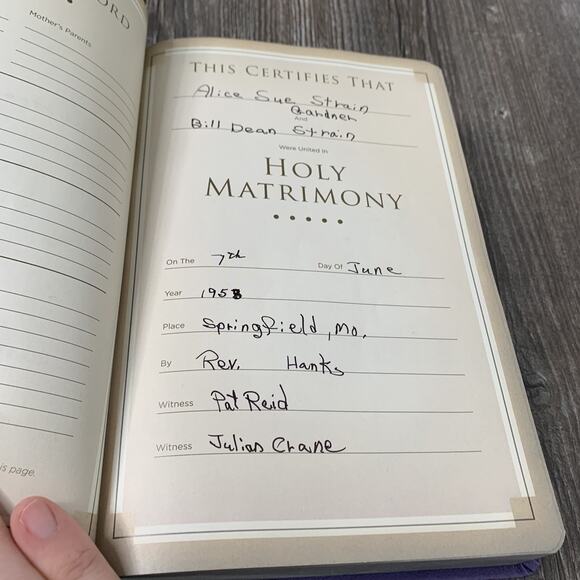 ORD
Mother's Parents
is page.
THIS CERTIFIES THAT
Alice Sue Strain
Gardner
And
Bill Dean Strain
Were United In
HOLY
MATRIMONY
On The 7th Day Of June
Year 1958
Place Springfield, Mo.
By Rev. Hanks
Witness Pat Reid
Witness Julian Crane